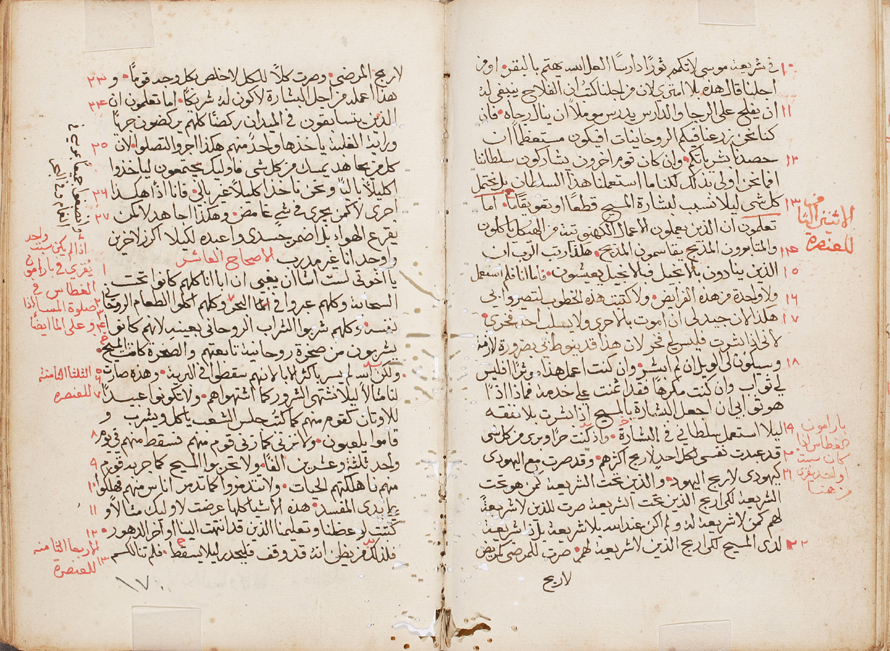 في شريعة موسى لا تكم ثورًا دارسًا العل الله يهتم بالبقر او من
احلنا قال هذه بلا امترى لان من اجلنا كتب ان الفلاح ينبغي له
ان يفلح على الرجا والدارس يدرس موملًا ان ينال رجاه فان
كنا نحن زرعنا فيكم الروحانيات افيكون مستعظمًا انا
حصدنا بشرياتكم وان كان قوم اخرون يشاركون سلطاننا
افما نحن اولى بذلك لكننا ما استعملنا هذا السلطان بل نحتمل
كل شي ليلا نسبب لبشارة المسيح قطعًا او تعويقًا اما
تعلمون ان الذين يعملون الاعمال الكهنوتية من الهيكل ياكلون
والمثابرون المذبح يقاسمون المذبح هكذا رتب الرب ان
الذين ينادون بالانجيل فبالانجيل يعيشون فاما انا فلم استعمل
ولا واحدة من هذه الفرايض ولا كتبت هذه الخطوب لتصير الى
هكذا لان جيد لي ان اموت بالاحرى ولا يسلب احد فخري
لاني اذا بشرت فليس لي فخر لان هذا قد ينوط بي بضرورة لازمة
وسيكون لي الويل ان لم ابشر وان كنت اعمل هذا موثرًا فليس
لي ثواب وان كنت مكرهًا فقد اؤتمنت على خدمة فماذا اذًا
هو ثوابي ان اجعل البشارة بالمسيح اذا بشرت بلا نفقه
ليلا استعمل سلطاني في البشارة واذ كنت حرًا وبري من كل شي
قد عبدت نفسي لكل احد لاربح اكثرهم وقد صرت مع اليهودي
كيهودي لاربح اليهود والذين تحت الشريعة كمن هو تحت
الشريعة لكي اربح الذين تحت الشريعة صرت للذين لا شريعة
لهم كمن لا شريعة له ولم اكن عند الله بلا شريعة بل انا بشريعة
لدى المسيح لكي اربح الذين لا شريعة لهم صرت للمرضى كمريض
لاربح
١٠
١١
١٢
١٣
١٤
١٥
١٦
١٧
١٨
١٩
٢٠
٢١
٢٢
للعنصرة
بارامون
لاربح المرضى وصرت كلًا للكل لاخلص بكل وجه قومًا
هذا اعمله من اجل البشارة لاكون له شريكًا اما تعلمون ان
الذين يتسابقون في الميدان ركضًا كلهم يركضون جريًا
وراية الغلبة ياخذها واحد منهم هكذا اجروا لتصلوا لان
كل من يجاهد يمسك من كل شي فاوليك يجتهدون لياخذوا
اكليلًا باليًا ونحن ناخذ اكليلًا غير بالي فانا اذًا هكذا
اجري لا كمن يجري في شي غامض وهكذا اجاهد لا كمن
يقرع الهوا بل اضمر جسدي واعبده لكيلا اكرز لاخرين
واوجد انا غير مدرب الاصحاح العاشر
يا اخوتي لست اشا ان يخفى ان ابانا كلهم كانوا تحت
السحابة وكلهم عبروا في البحر وكلهم اكلوا الطعام الروحاني
نفسه وكلهم شربوا الشراب الروحاني بعينه لانهم كانوا
يشربون من صخرة روحانية تابعتهم والصخرة كانت المسيح
ولكن الله لم يسر باكثرهم لانهم سقطوا في البرية وهذه صارت
لنا مثالًا ليلا نشتهي الشرور كما اشتهوا هم ولا تكونوا عبيدًا
للاوثان كقوم منهم كما كتب جلس الشعب ياكل ويشرب و
قاموا يلعبون ولا نزني كما زنى قوم منهم فسقط منهم في يوم
واحد ثلثة وعشرين الفًا ولا نجرب المسيح كما جربه قوم
منهم فاهلكتهم الحيات ولا تتذمروا كما تذمر اناس منهم فهلكوا
بايدي المفسد هذه الاشيا كلها عرضت لاوليك مثالًا و
كتبت لوعظنا وتعليمنا الذين قد انتهت الينا اواخر الدهور
فلذلك فمن يظن انه قد وقف فليحذر ليلا يسقط فلم تنالكم
٢٣
٢٤
٢٥
٢٦
٢٧
اذا لم يكن سبت
يقرى في بارامون
الغطاس في
الثلثا الثامنة
للعنصرة
الاربعا الثامنة
للعنصرة
١٧٠